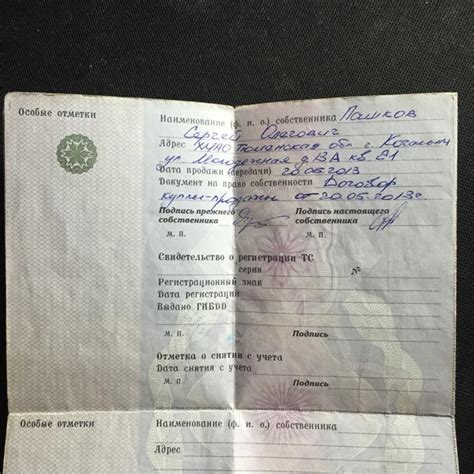 Особые отметки
Наименование (ф. и. о.) собственника Пашков
Сергей Олегович
Адрес ХМАО Тюменская обл г. Когалым
ул. Молодежная д. 13А кв. 81
Дата продажи (передачи) 20.05.2013
Документ на право собственности Договор
купли-продажи от 20.05.2013г.
Подпись прежнего собственника
Подпись настоящего собственника
М. П.
М. П.
Свидетельство о регистрации ТС
серия №
Регистрационный знак
Дата регистрации
Выдано ГИБДД
М. П.
Подпись
Отметка о снятии с учета
Дата снятия с учета
М. П.
Подпись
Особые отметки
Наименование (ф. и. о.) собственника
Адрес